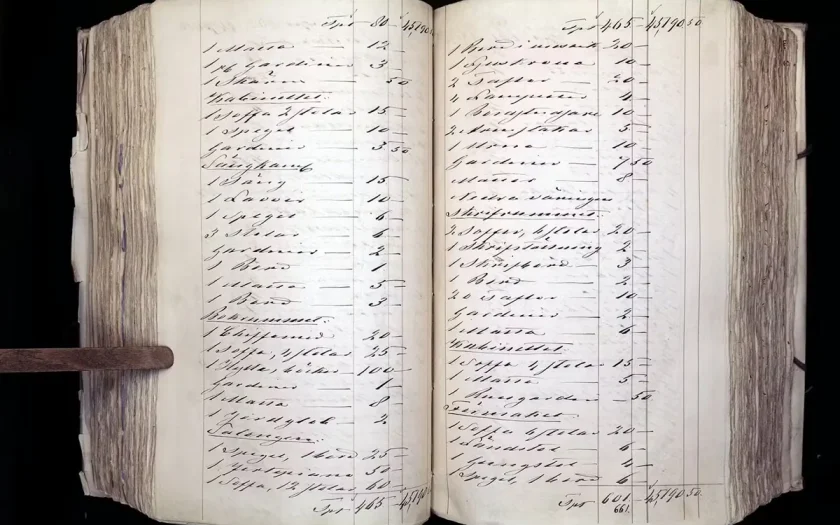 Tpt 80 — 45,790.50
1 Matta — 12 —
1 pk Gardiner — 3 —
1 Skärm — 50
Kabinettet:
1 Soffa 2 stolar — 15 —
1 Spegel — 10 —
Gardiner — 3 50
Sängkam:
1 Säng — 15 —
1 Lavoir — 10 —
1 Spegel — 6 —
3 Stolar — 6 —
Gardiner — 2 —
1 Bord — 1 —
1 Matta — 5 —
1 Bord — 3 —
1 Chiffonié — 20 —
1 Soffa, 4 stolar — 25 —
1 Hylla, böcker — 100 —
Gardiner — 1 —
1 Matta — 8 —
1 Jordglob — 2
Salongen:
1 Spegel, 1 bord — 25 —
1 Fortepiano — 50 —
1 Soffa, 12 stolar 60 —
Tpt 465 — 45,790.
Tpt 465 — 45,790 50
1 Ljuskrona — 10 —
2 Taflor — 20 —
4 Lampetter — 4 —
10 —
5 —
10 —
Gardiner — 7 50
Mattor — 8 —
Nedra våningen
Skrifrummet:
2 Soffor, 4 stolar 20 —
1 Skrifställning 2 —
1 Skrifbord — 3 —
1 Bord — 2 —
20 Taflor — 10 —
Gardiner — 2 —
1 Matta — 6 —
Kabinettet
1 Soffa 4 stolar 15 —
1 Matta — 5 —
1 Rumgardin — 50
Förmaket:
1 Soffa 6 stolar — 20 —
1 Länstol — 6 —
1 Gungstol — 4 —
1 Spegel, 1 bord — 6 —
Tpt 601 — 45,790 50.
661.